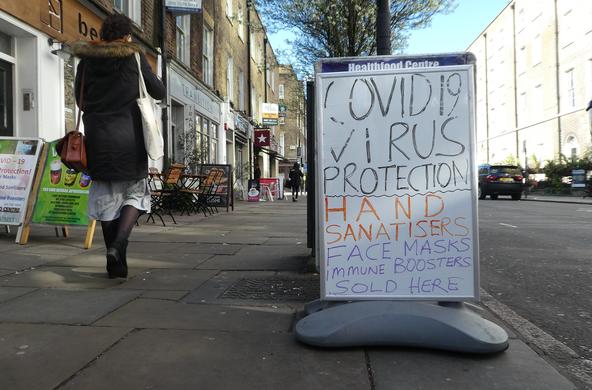 Healthfood Centre
COVID 19
VIRUS
PROTECTION
HAND
SANATISERS
FACE MASKS
immune BOOSTERS
SOLD HERE
VID - 19
Protection!